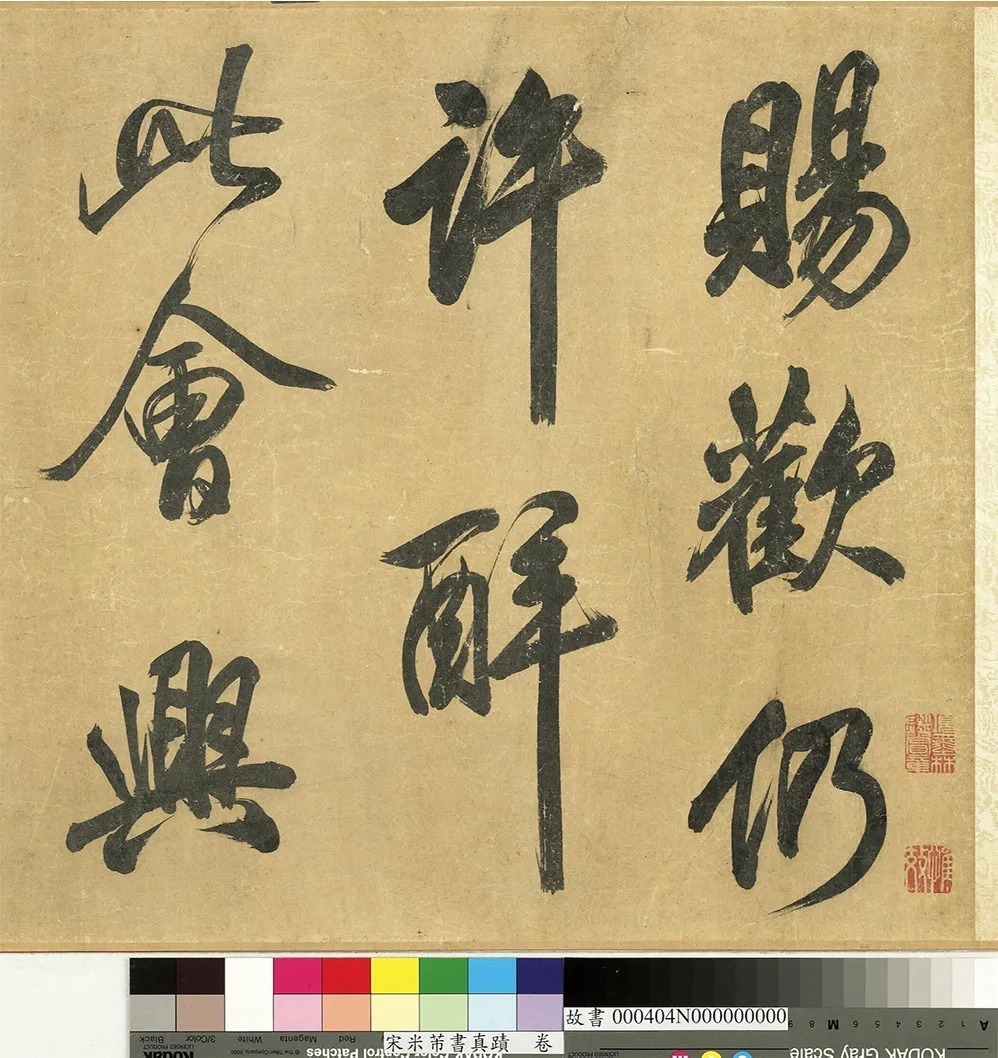 賜歡仍
許醉
此會興
故書 000404N000000000
宋米芾書真蹟 卷
KODAK Gray Scale
A 1 2 3 4 5 6 M 8 9
Kodak
LICENSED PRODUCT
Control Patches
© The Tiffen Company, 2000
Red Magenta White 3/Color Black